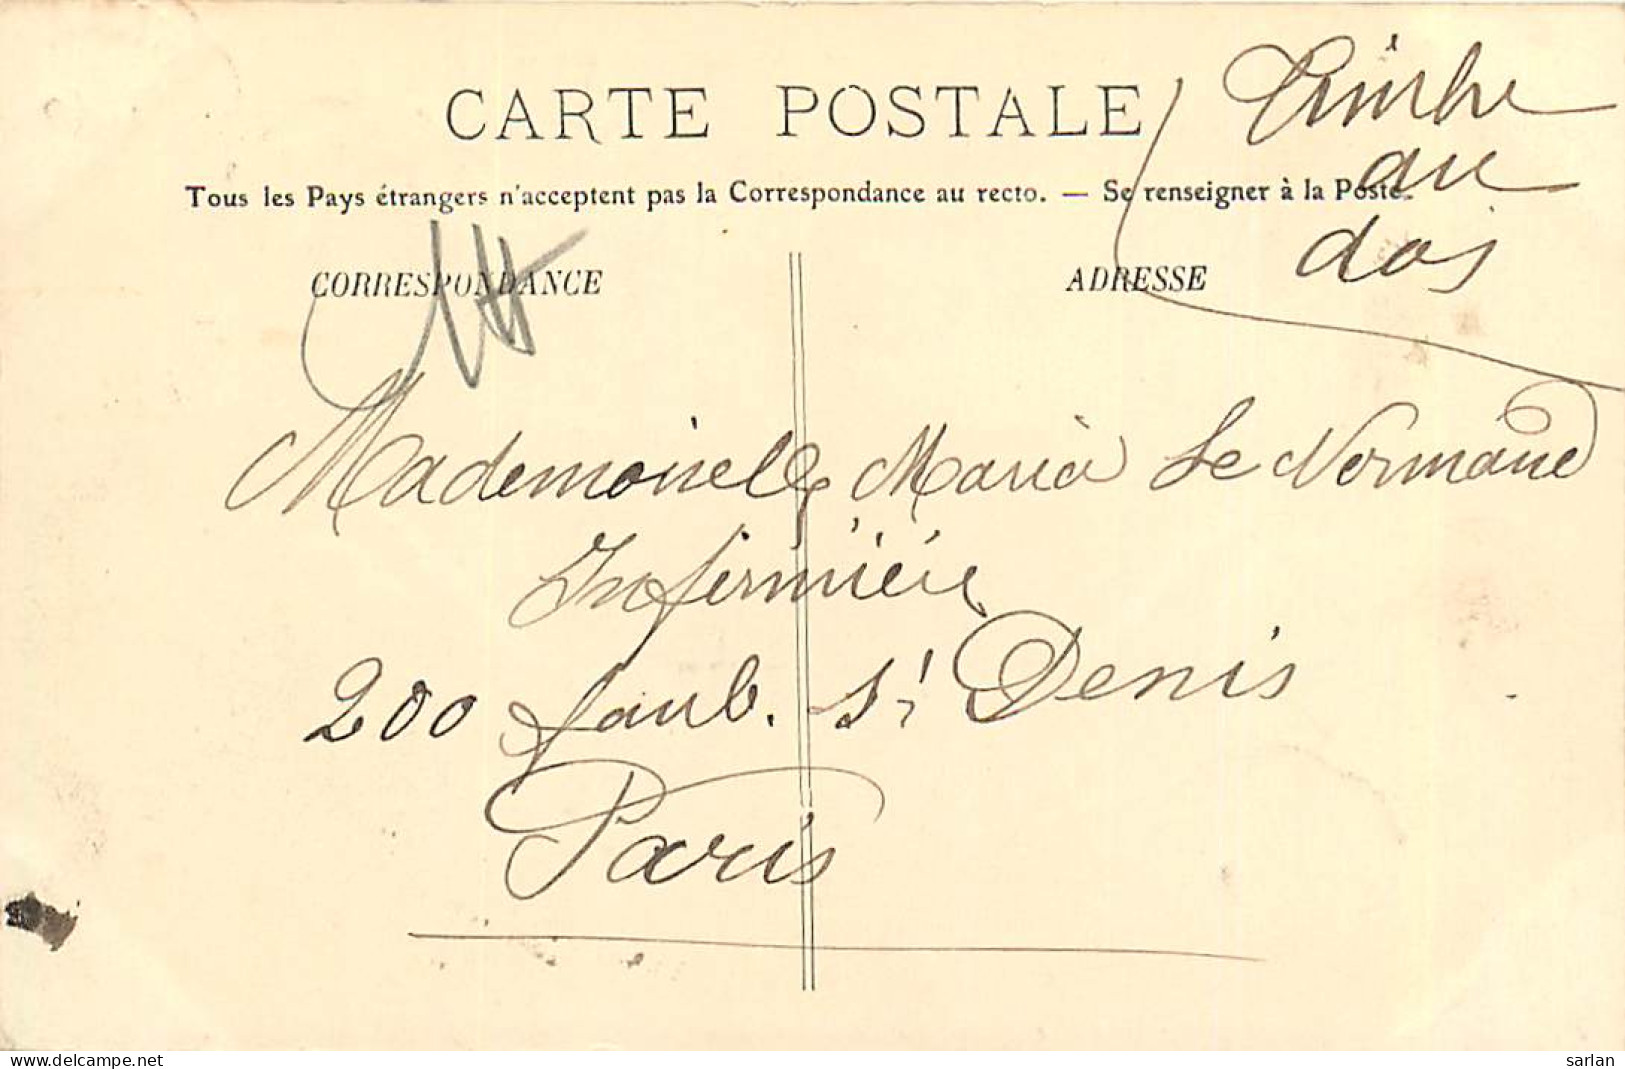 CARTE POSTALE
Timbre
au
dos
Tous les Pays étrangers n'acceptent pas la Correspondance au recto. — Se renseigner à la Poste.
CORRESPONDANCE
ADRESSE
Mademoiselle Maria Le Normand
Infirmière
200 faub. St Denis
Paris
www.delcampe.net
sarlan